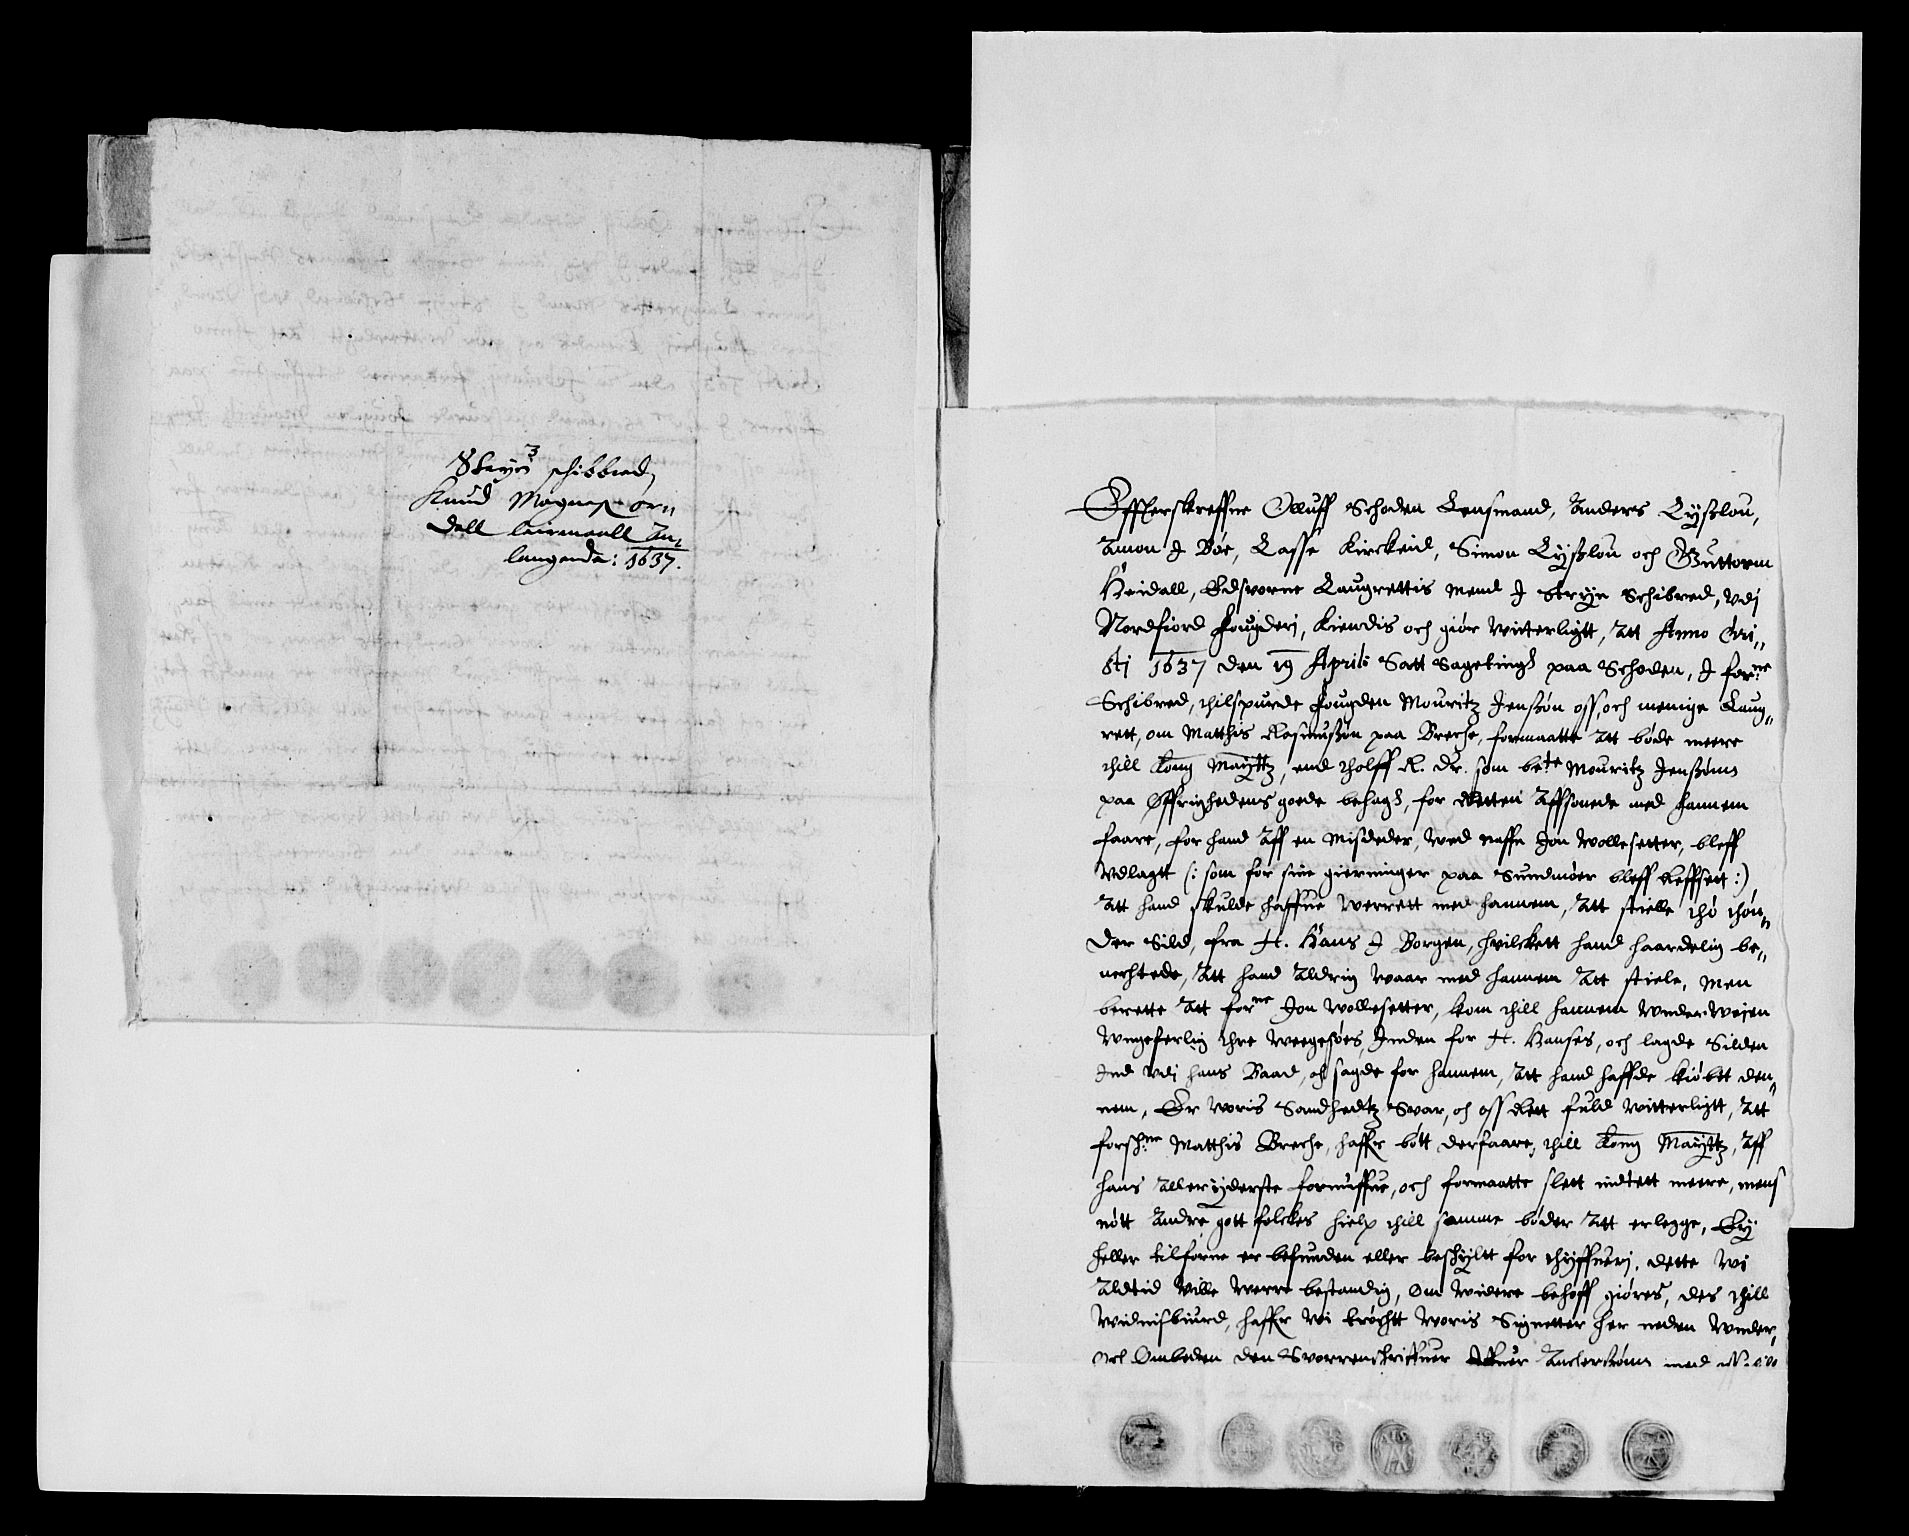 3
Stryn schibbred
Knud Magnuss Ør¬
dall leiermaall An¬
langende: 1637.
Effterskreffne Olluff Schoden Lensmand, Anders Lysslou,
Amon I Bøe, Lasse Kirckeid, Simon Lysslou och Guttorm
Heidall, Edsvorne Laugrettis mend I Stryn Schibred, vdj
Nordfiord Fougderj, Kiendis och giør witterligtt, Att Anno Cri¬
stj 1637 den 19 Aprilis Satt Sagetingh paa Schoden, I for:ne
Schibred, thilspurde Fougden Mouritz Jenssøn oss, och menige Laug¬
rett, om Matthis Rasmussøn paa Breche, formaatte Att bøde meere
thill Kong Maÿttz, end tholff R. dr. som be:te Mouritz Jenssøn
paa Øffrighedens goede behagh, for Retten Affsonede med hannem
faare, for hand Aff en Misdeder, wed naffn Jon Vollesetter, bleff
Vdlagtt (: som for sine gierninger paa Sundmøer bleff Reffsett :)
Att hand skulde haffue werrett med hannem, Att stielle thò thøn¬
der Sild, fra H. Hans I Borgen, hvilckett hand haardelig be¬
nechtede, Att hand Aldrig waar med hannem Att stiele, Men
berette Att for:ne Jon Vollesetter, kom thill hannem Vnder Weien
Vngeferlig thre weegesøes, Inden for H. Hanses, och lagde Silden
Ind vdj hans Baad, och sagde for hannem, Att hand haffde kiøbt den¬
nem, Er woris Sandhedtz Svar, och oss Rett fuld witterligtt, Att
forsch:ne Matthis Breche, haffr bøtt derfaare, thill Kong Maÿttz, Aff
hans Aller yderste formuffue, och formaatte slett indtett meere, mens
nøtt Andre gott folckes hielp thill samme bøder Att erlegge, Ey
heller tilforne er befunden eller beskyltt for thyffuerj, dette wi
Altid Ville werre bestandig, Om widere behoff giøres, des thill
Widnisbiurd, haffr wi trøchtt woris Signetter her neden Vnder,
och Ombeden den Svorrenschriffuer Anderssøn med